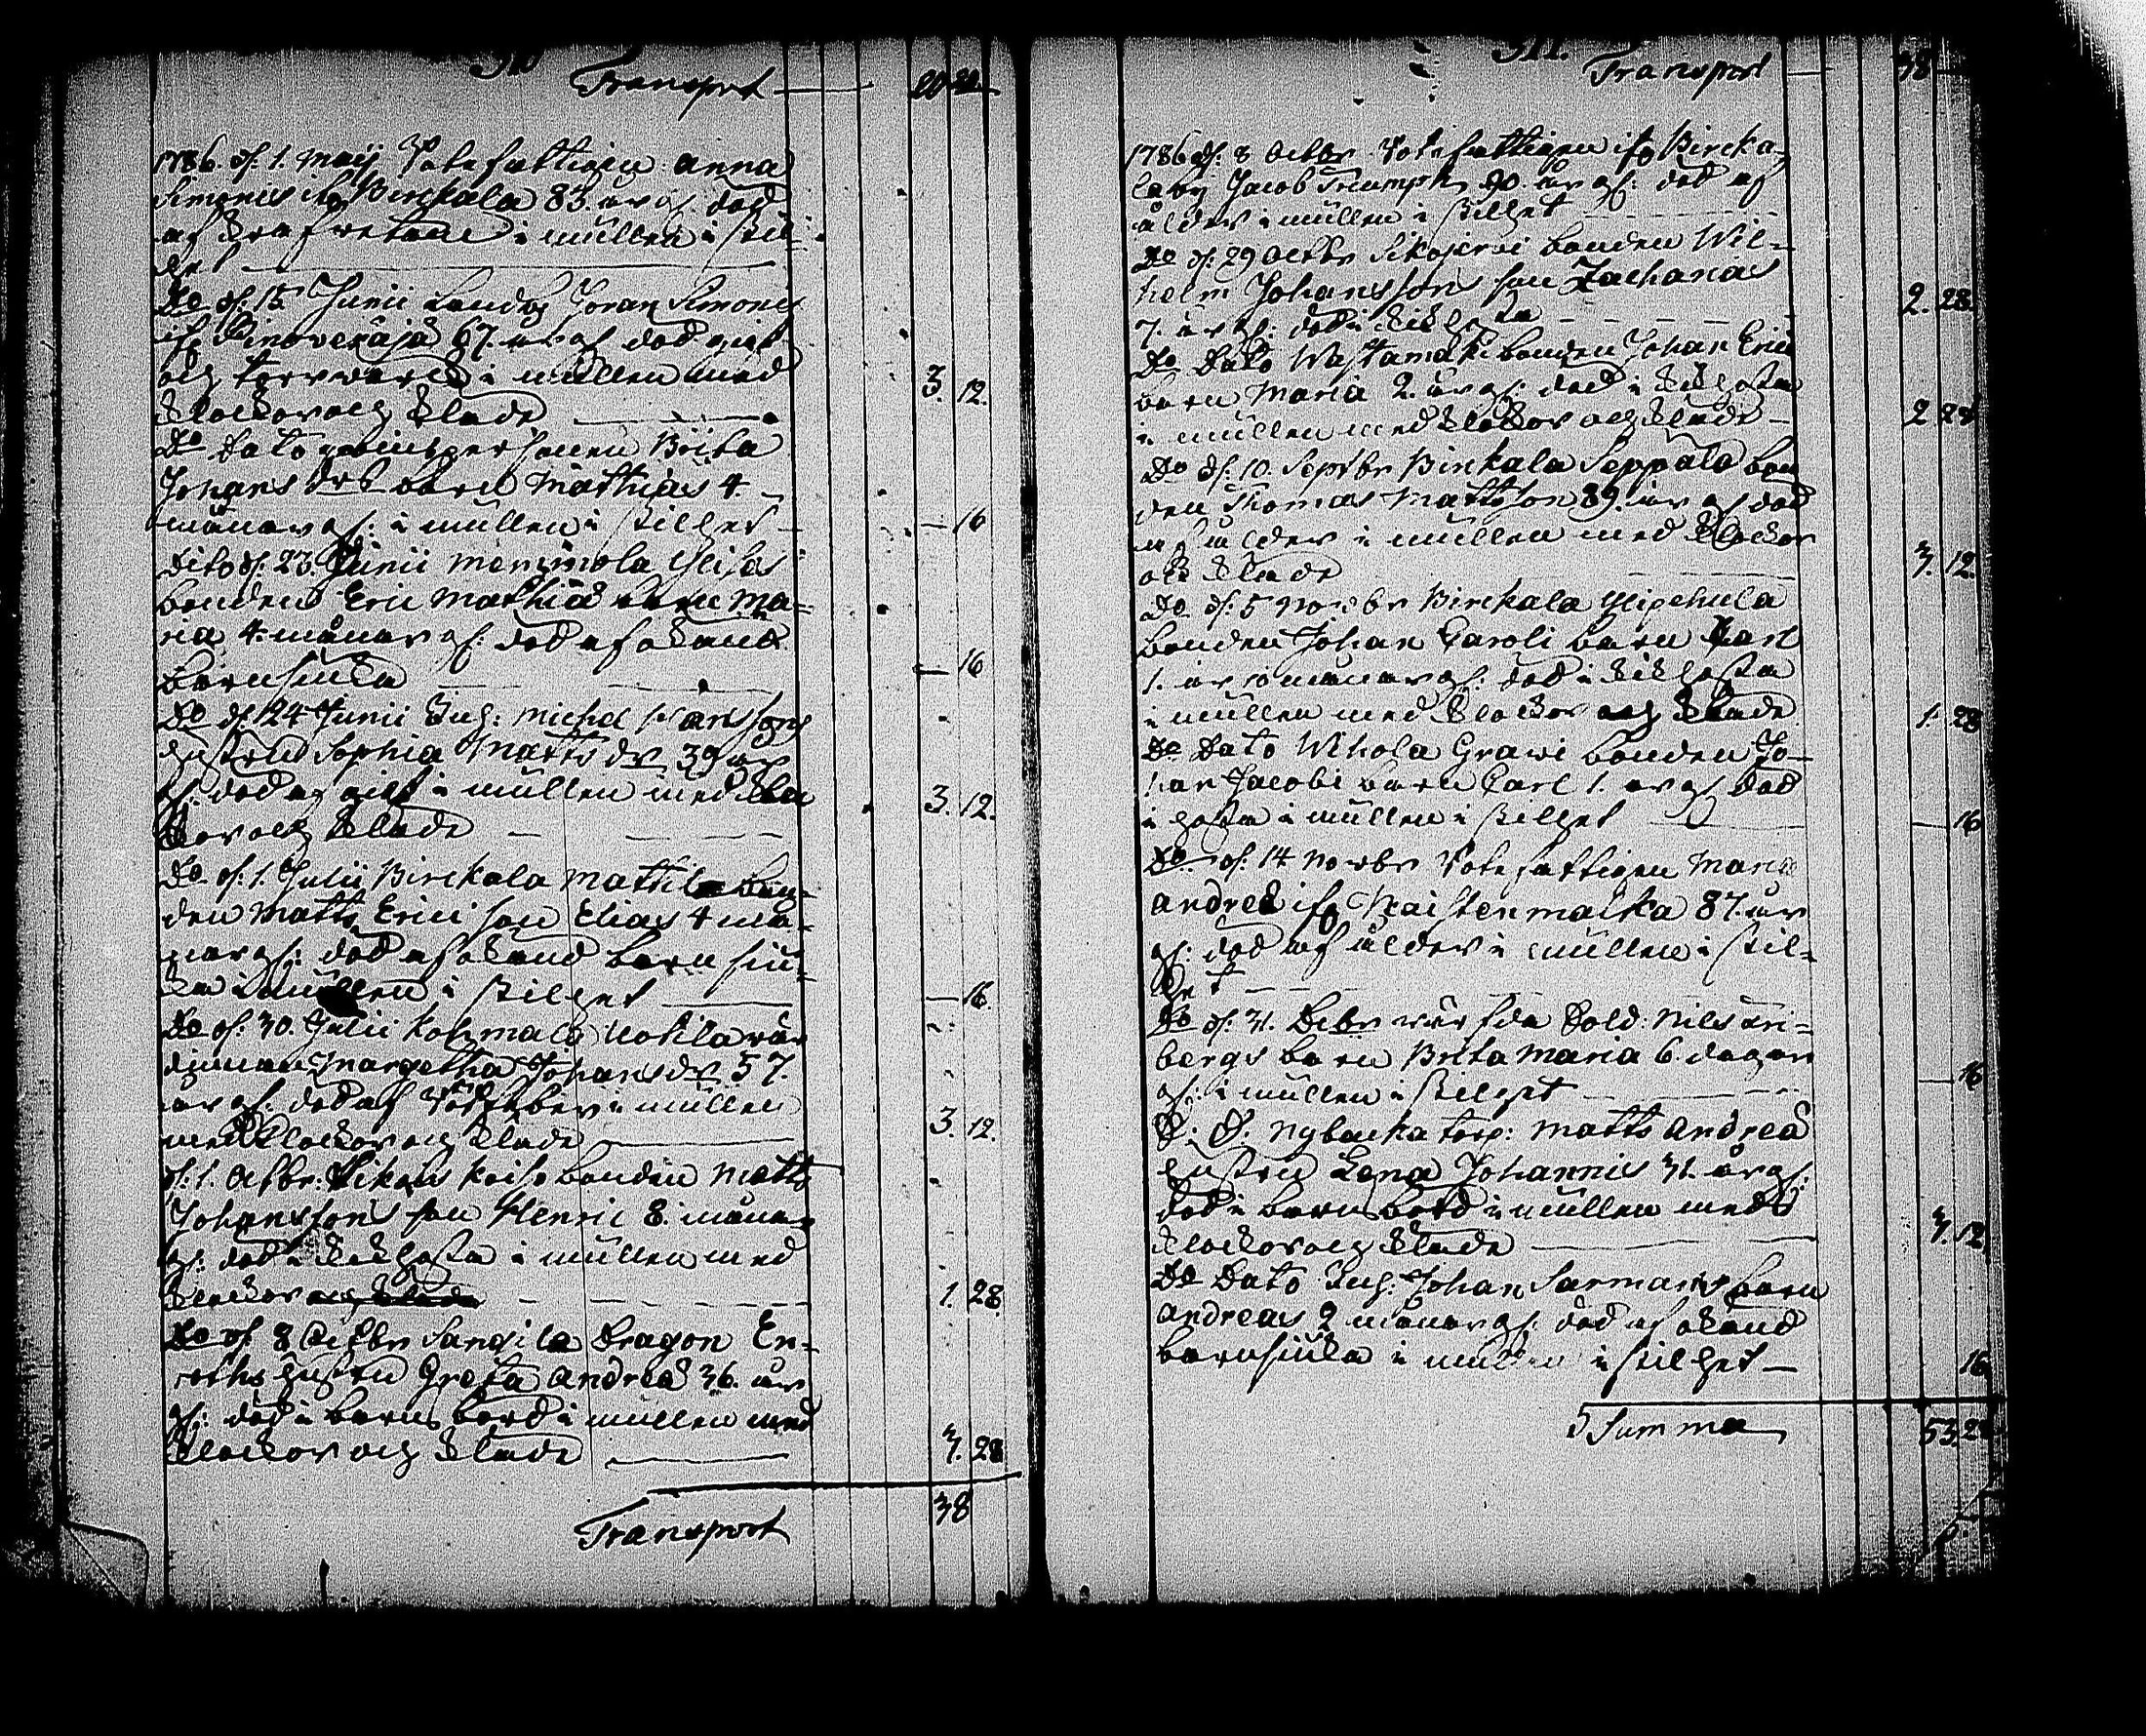 310
Transport 20 32
1786. d: 1. Maij Rotefattigen Anna
Simonis ifr Birckala 83. år gl. död
af i mullen i stil-
het
Do d: 15 Junii Landb Jöran Simonis
ifr Pinoveräjä 67. år gl död
och i mullen med
klockor och kläde 3. 12.
Do Dato inhyspersonen Brita
Johans dr barn Mathias 4.
månar gl: i mullen i stilhet 16
Dito d: 23 Junii Menimola
bonden Eric Mathiæ barn Ma-
ria 4. månar gl: död af okänd
barnsiuka 16
Do d: 24 Junii Inh: Michel Hanssons
hustru Sophia Matts dr 39 år
gl: död af i mullen med kla
kor och kläde 3. 12.
Do d: 1. Julii Birckala Mattila bon-
den Matts Erici son Elias 4 må-
nar gl: död af okänd barnsiu-
ka i mullen i stilhet 16
Do d: 30. Julii
Margetha Johans dr 57.
år gl. död af i mullen
med klockor och kläde 3. 12.
d: 1. Octbr: bonden Matts
Johanssons son Henric 8. måna
gl: död i kikhosta i mullen med
klockor och kläde 1. 28.
Do d: 8 Octbr Sangila Dragon En-
roths hustru Greta Andreæ 36. år
gl: död i barns börd i mullen med
klockor och kläde 3. 28
Transport 38
311.
Transport 38
1786 d: 8 Octbr Rotefattigen ifr Bircka-
la by Jacob Triumph 90. år gl: död af
ålder i mullen i stilhet
Do d: 29 Octbr Sikojervi bonden Wil-
helm Johanssons son Zacharias
7. år gl: död i kikhosta 2. 28.
Do Dato Wästamäki bonden Johan Erici
barn Maria 2. år gl: död i kikhosta
i mullen med klockor och kläde 2 28
Do d: 10. Septbr Birckala Seppälä bon
den Thomas Mattsson 89. år gl död
af ålder i mullen med klockor
och kläde 3. 12.
Do d: 5 Novbr Birckala
bonden Johan Caroli barn Karl
1. år 10 månar gl: död i kikhosta
i mullen med klockor och kläde 1. 28
Do Dato Wihola Grawi bonden Jo-
han Jacobi barn Carl 1. år gl död
i hosta i mullen i stilhet 16
Do d: 14 Novbr Rotefattigen Maria
Andreæ ifr Naistenmatka 87. år
gl: död af ålder i mullen i stil-
het
Do d: 31. Debr Sold: Nils
bergs barn Brita Maria 6. dagar
gl: i mullen i stilhet 16
D: D. Nybacka torp: Matts Andreæ
hustru Lena Johannis 31. år gl:
död i barnsbörd i mullen med
klockor och kläde 3. 12
Do Dato Inh. Johan Sarmans barn
Andreas 2 månar gl: död af okänd
barnsiuka i mullen i stilhet 16
Summa 53. 28